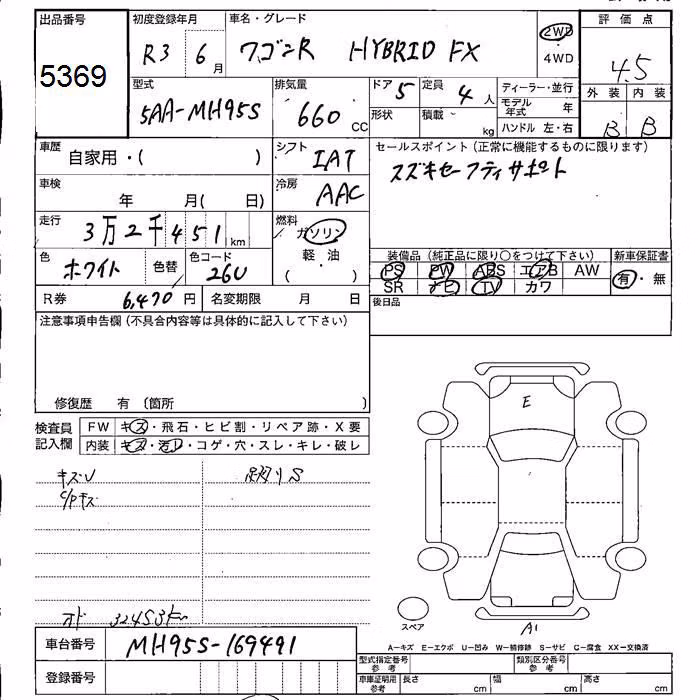 出品番号 初度登録年月 車名・グレード 2WD 評価点
5369 R3 6月 ワゴンR HYBRID FX 4WD 4.5
型式 排気量 ドア 5 定員 4人 ディーラー・並行 外装 内装
5AA-MH95S 660 CC 形状 積載 kg モデル年式 年 B B
ハンドル 左・右
車歴 自家用・( ) シフト IAT セールスポイント (正常に機能するものに限ります)
車検 年 月( 日) 冷房 AAC スズキセーフティサポート
走行 3万2千451km 燃料 ガソリン
軽・油
( ・ )
色 ホワイト 色替 色コード 26U 装備品 (純正品に限り○をつけて下さい) 新車保証書
PS PW ABS エアB AW 有・無
SR ナビ TV カワ
R券 6,470円 名変期限 月 日 後日品
注意事項申告欄 (不具合内容等は具体的に記入して下さい)
修復歴 有 〔箇所 〕
検査員記入欄 FW キズ・飛石・ヒビ割・リペア跡・X要
内装 キズ・汚レ・コゲ・穴・スレ・キレ・破レ
E
キズU
C/Pキズ
オド 32453km
スペア
A1
車台番号 MH95S-169491
登録番号
A−キズ E−エクボ U−凹み W−補修跡 S−サビ C−腐食 XX−交換済
型式指定番号 参考 類別区分番号 参考
車庫証明用 参考 長さ cm 幅 cm 高さ cm